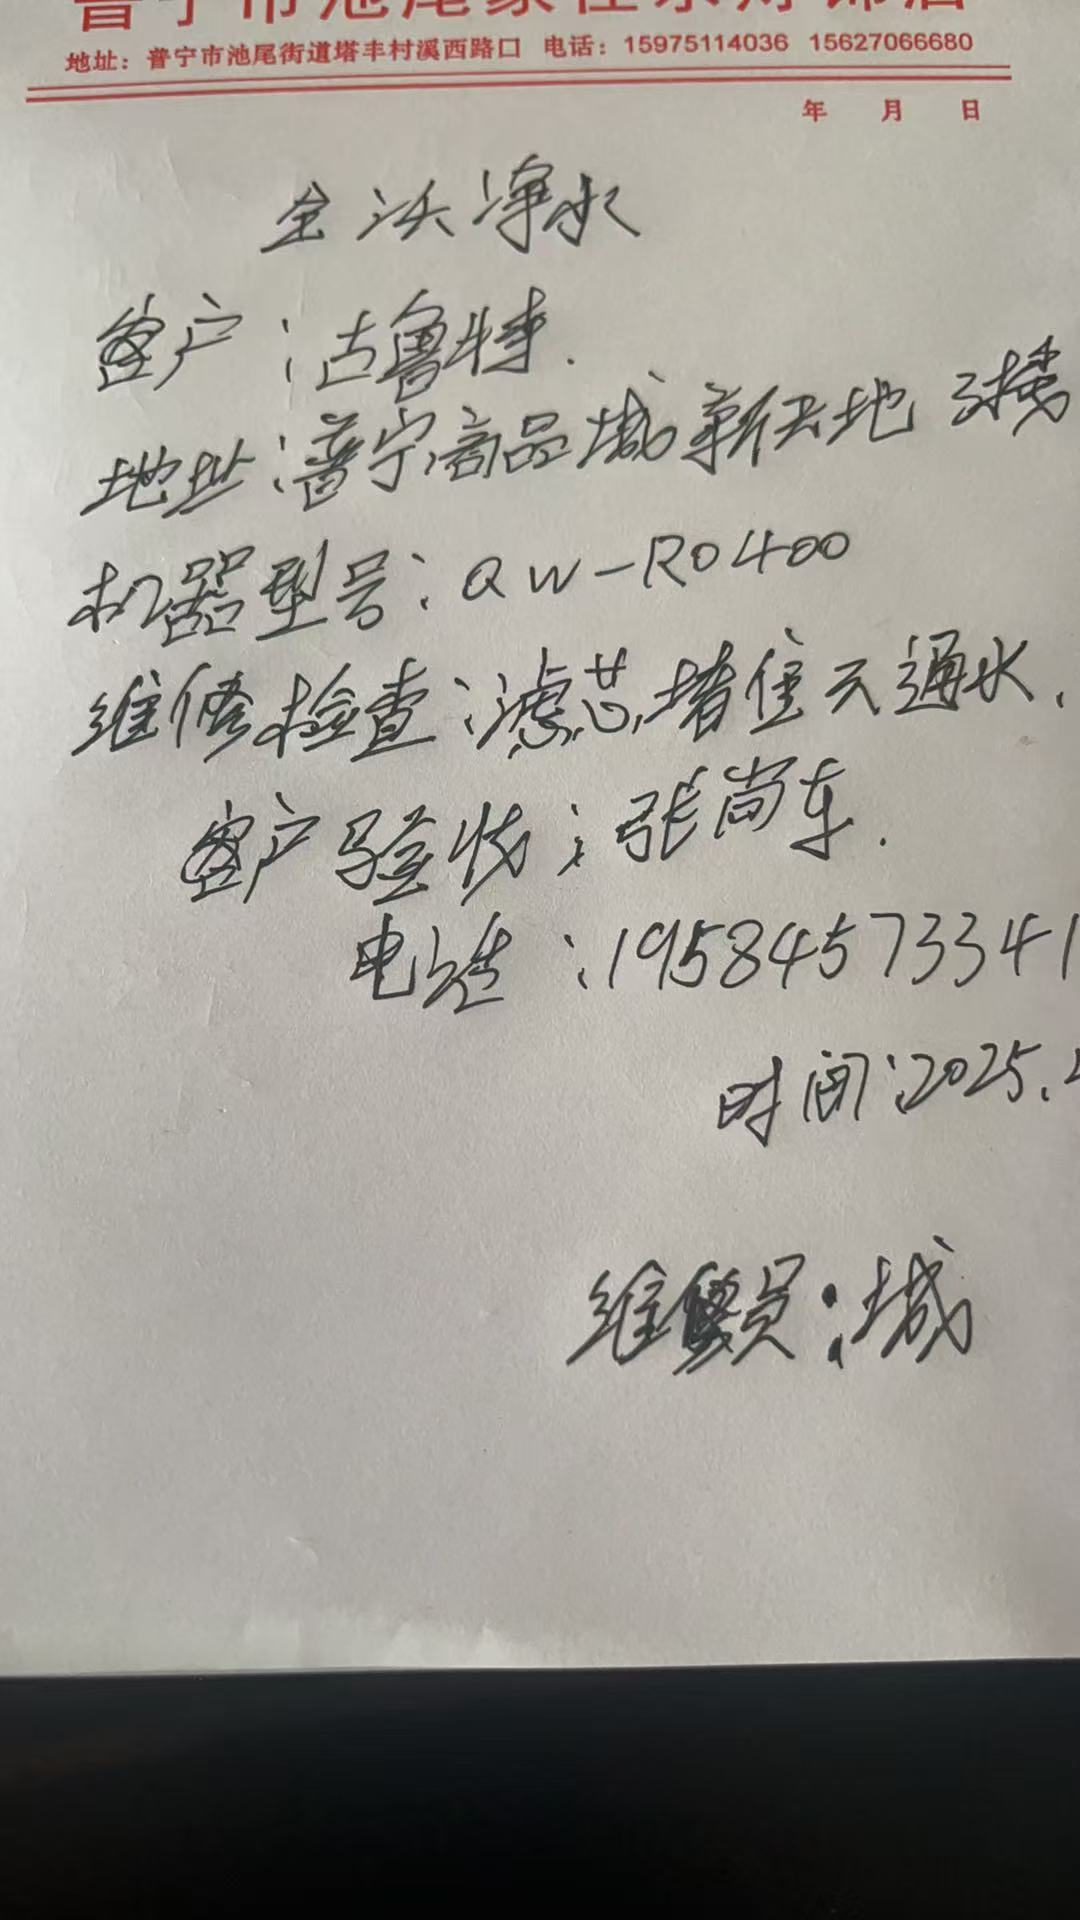 普宁市池尾家佳乐灯饰店
地址：普宁市池尾街道塔丰村溪西路口 电话：15975114036 15627066680
年 月 日
全沃净水
客户：古鲁特.
地址：普宁商品城新天地3楼
机器型号：QW-RO400
维修检查：滤芯堵住不通水.
客户验收：张尚东.
电话：19584573341
时间：2025.
维修员：城